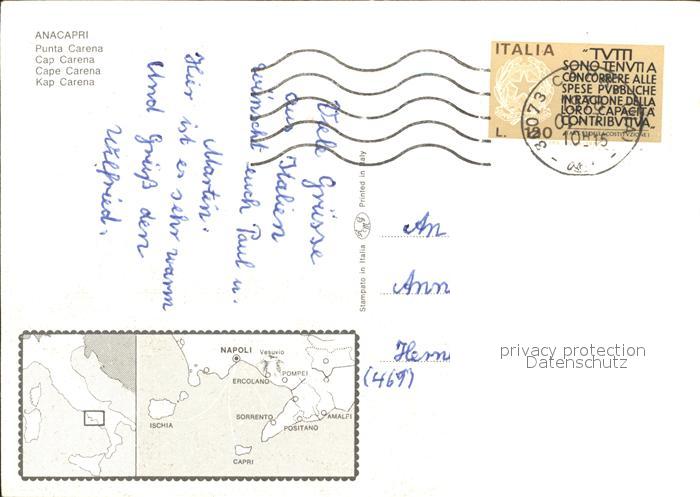 ANACAPRI
Punta Carena
Cap Carena
Cape Carena
Kap Carena
Viele Grüsse
aus Italien
wünscht euch Paul u.
Martin.
Hier ist es sehr warm
Und Grüß den
Wilfried.
ITALIA
"TUTTI
SONO TENUTI A
CONCORRERE ALLE
SPESE PUBBLICHE
IN RAGIONE DELLA
LORO CAPACITÀ
CONTRIBUTIVA"
L. 120
10-15
Stampato in Italia
Printed in Italy
An
Ann
Herrn
(469)
privacy protection
Datenschutz
NAPOLI
Vesuvio
POMPEI
ERCOLANO
SORRENTO
AMALFI
POSITANO
ISCHIA
CAPRI